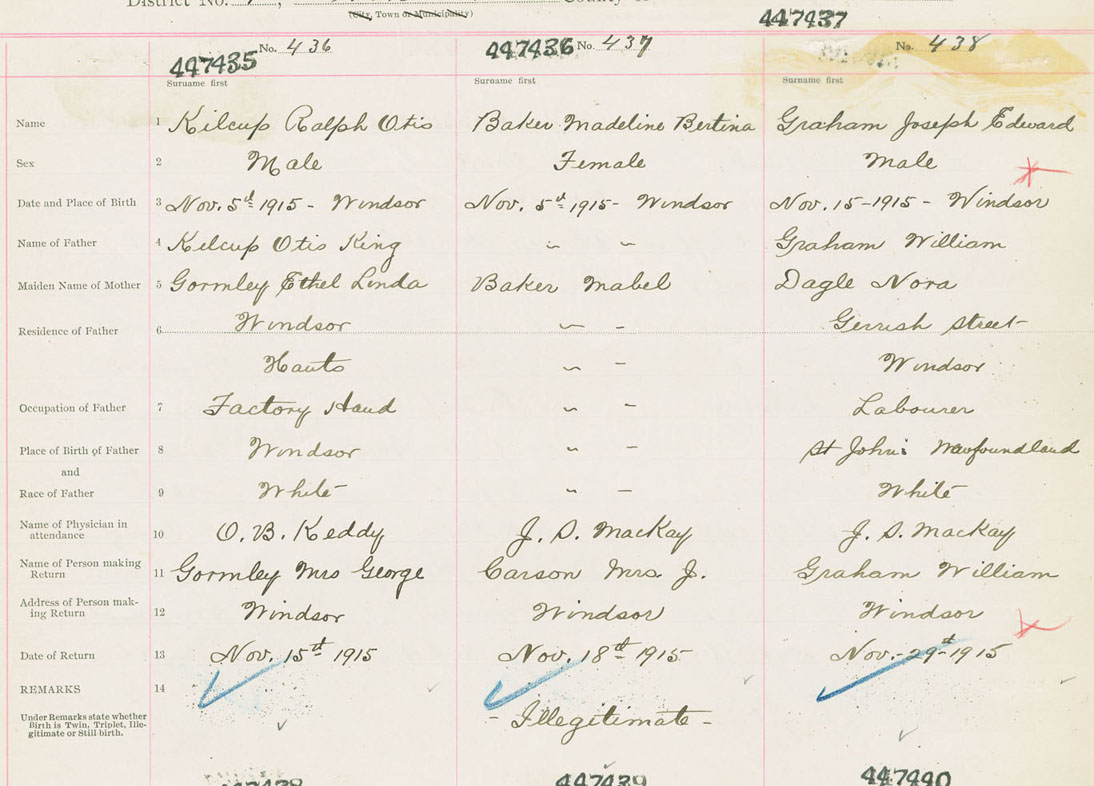 District No.
(City, Town or Municipality)
447437
447435 No. 436 447436 No. 437 No. 438
Surname first Surname first Surname first
Name 1 Kilcup Ralph Otis Baker Madeline Bertina Graham Joseph Edward
Sex 2 Male Female Male
Date and Place of Birth 3 Nov. 5th 1915 - Windsor Nov. 5th 1915 - Windsor Nov. 15 - 1915 - Windsor
Name of Father 4 Kilcup Otis King " " Graham William
Maiden Name of Mother 5 Gormley Ethel Linda Baker Mabel Dagle Nora
Residence of Father 6 Windsor " - Gerrish Street
Hants " - Windsor
Occupation of Father 7 Factory Hand " - Labourer
Place of Birth of Father 8 Windsor " - St John's Newfoundland
and
Race of Father 9 White " - White
Name of Physician in attendance 10 O. B. Keddy J. S. MacKay J. S. MacKay
Name of Person making Return 11 Gormley Mrs George Carson Mrs J. Graham William
Address of Person making Return 12 Windsor Windsor Windsor
Date of Return 13 Nov. 15th 1915 Nov. 18th 1915 Nov. - 29th - 1915
REMARKS 14
Under Remarks state whether
Birth is Twin, Triplet, Ille-
gitimate or Still-birth.
- Illegitimate -
447438 447439 447440